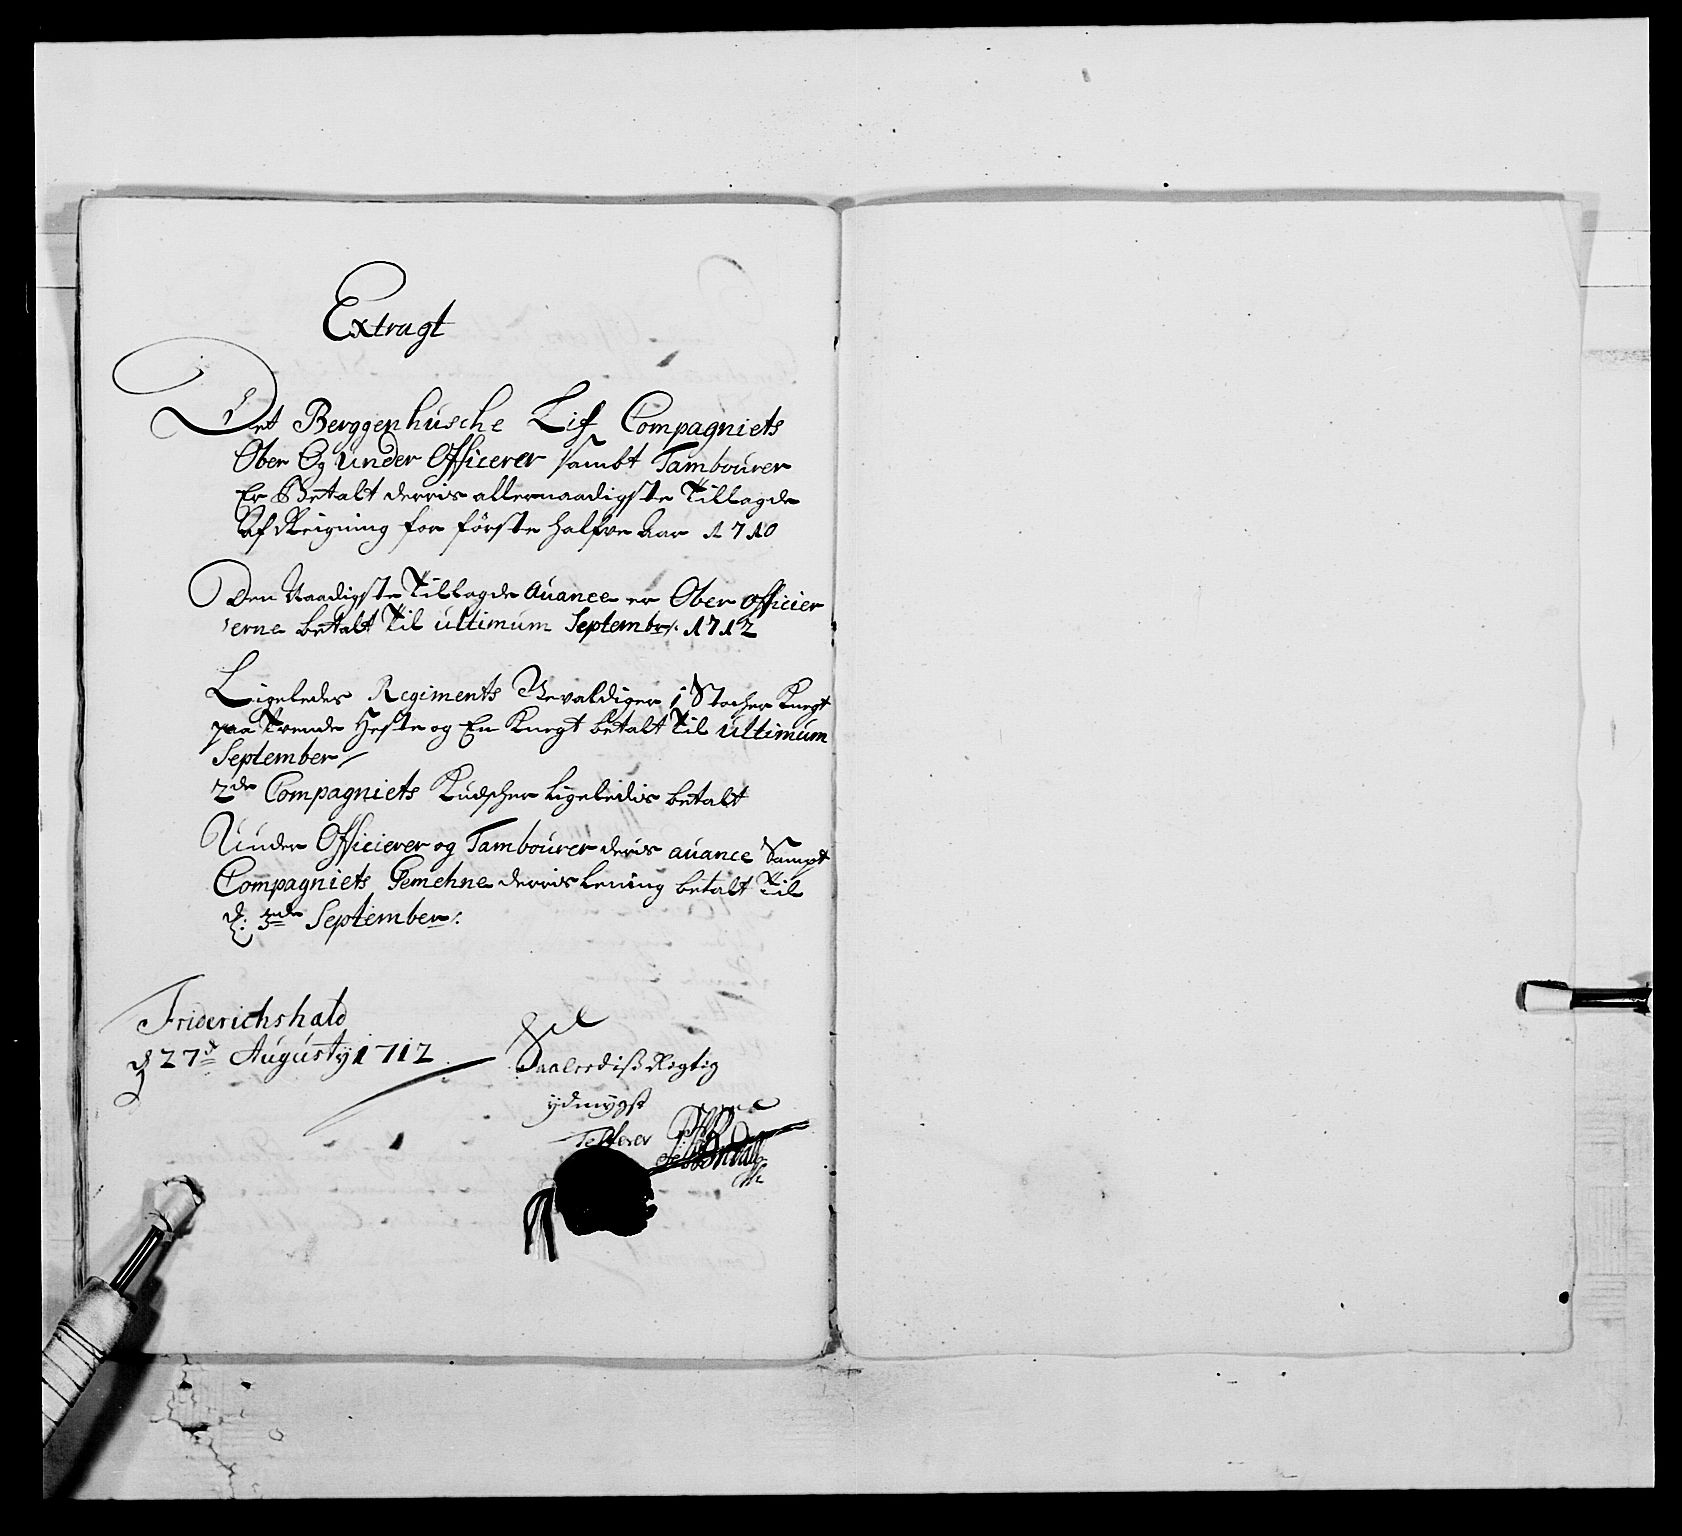 Extragt
Det Berggenhusche Lif Compagniets
Ober Og under Officerer sambt Tambourer
Er Betalt derris allernaadigste Tillagde
Afreigning for förste halfve Aar 1710
Den Naadigste Tillagde Auance er Ober officier
erne betalt Til ultimum Septembr: 1712
Ligeledes Regiments Gevaldiger, j Stocher Knegt
paa Trende Heste og En Knegt betalt Til ultimum
September
2de Compagniets Kudscher ligeledis betalt
Under Officierer og Tambourer deris auance Sampt
Compagniets Gemehne derris Lening betalt Til
d: 3de September:
Friderichshald
d 27d Augusty 1712
Saalediß Rigtig
ydmygst
Testerer